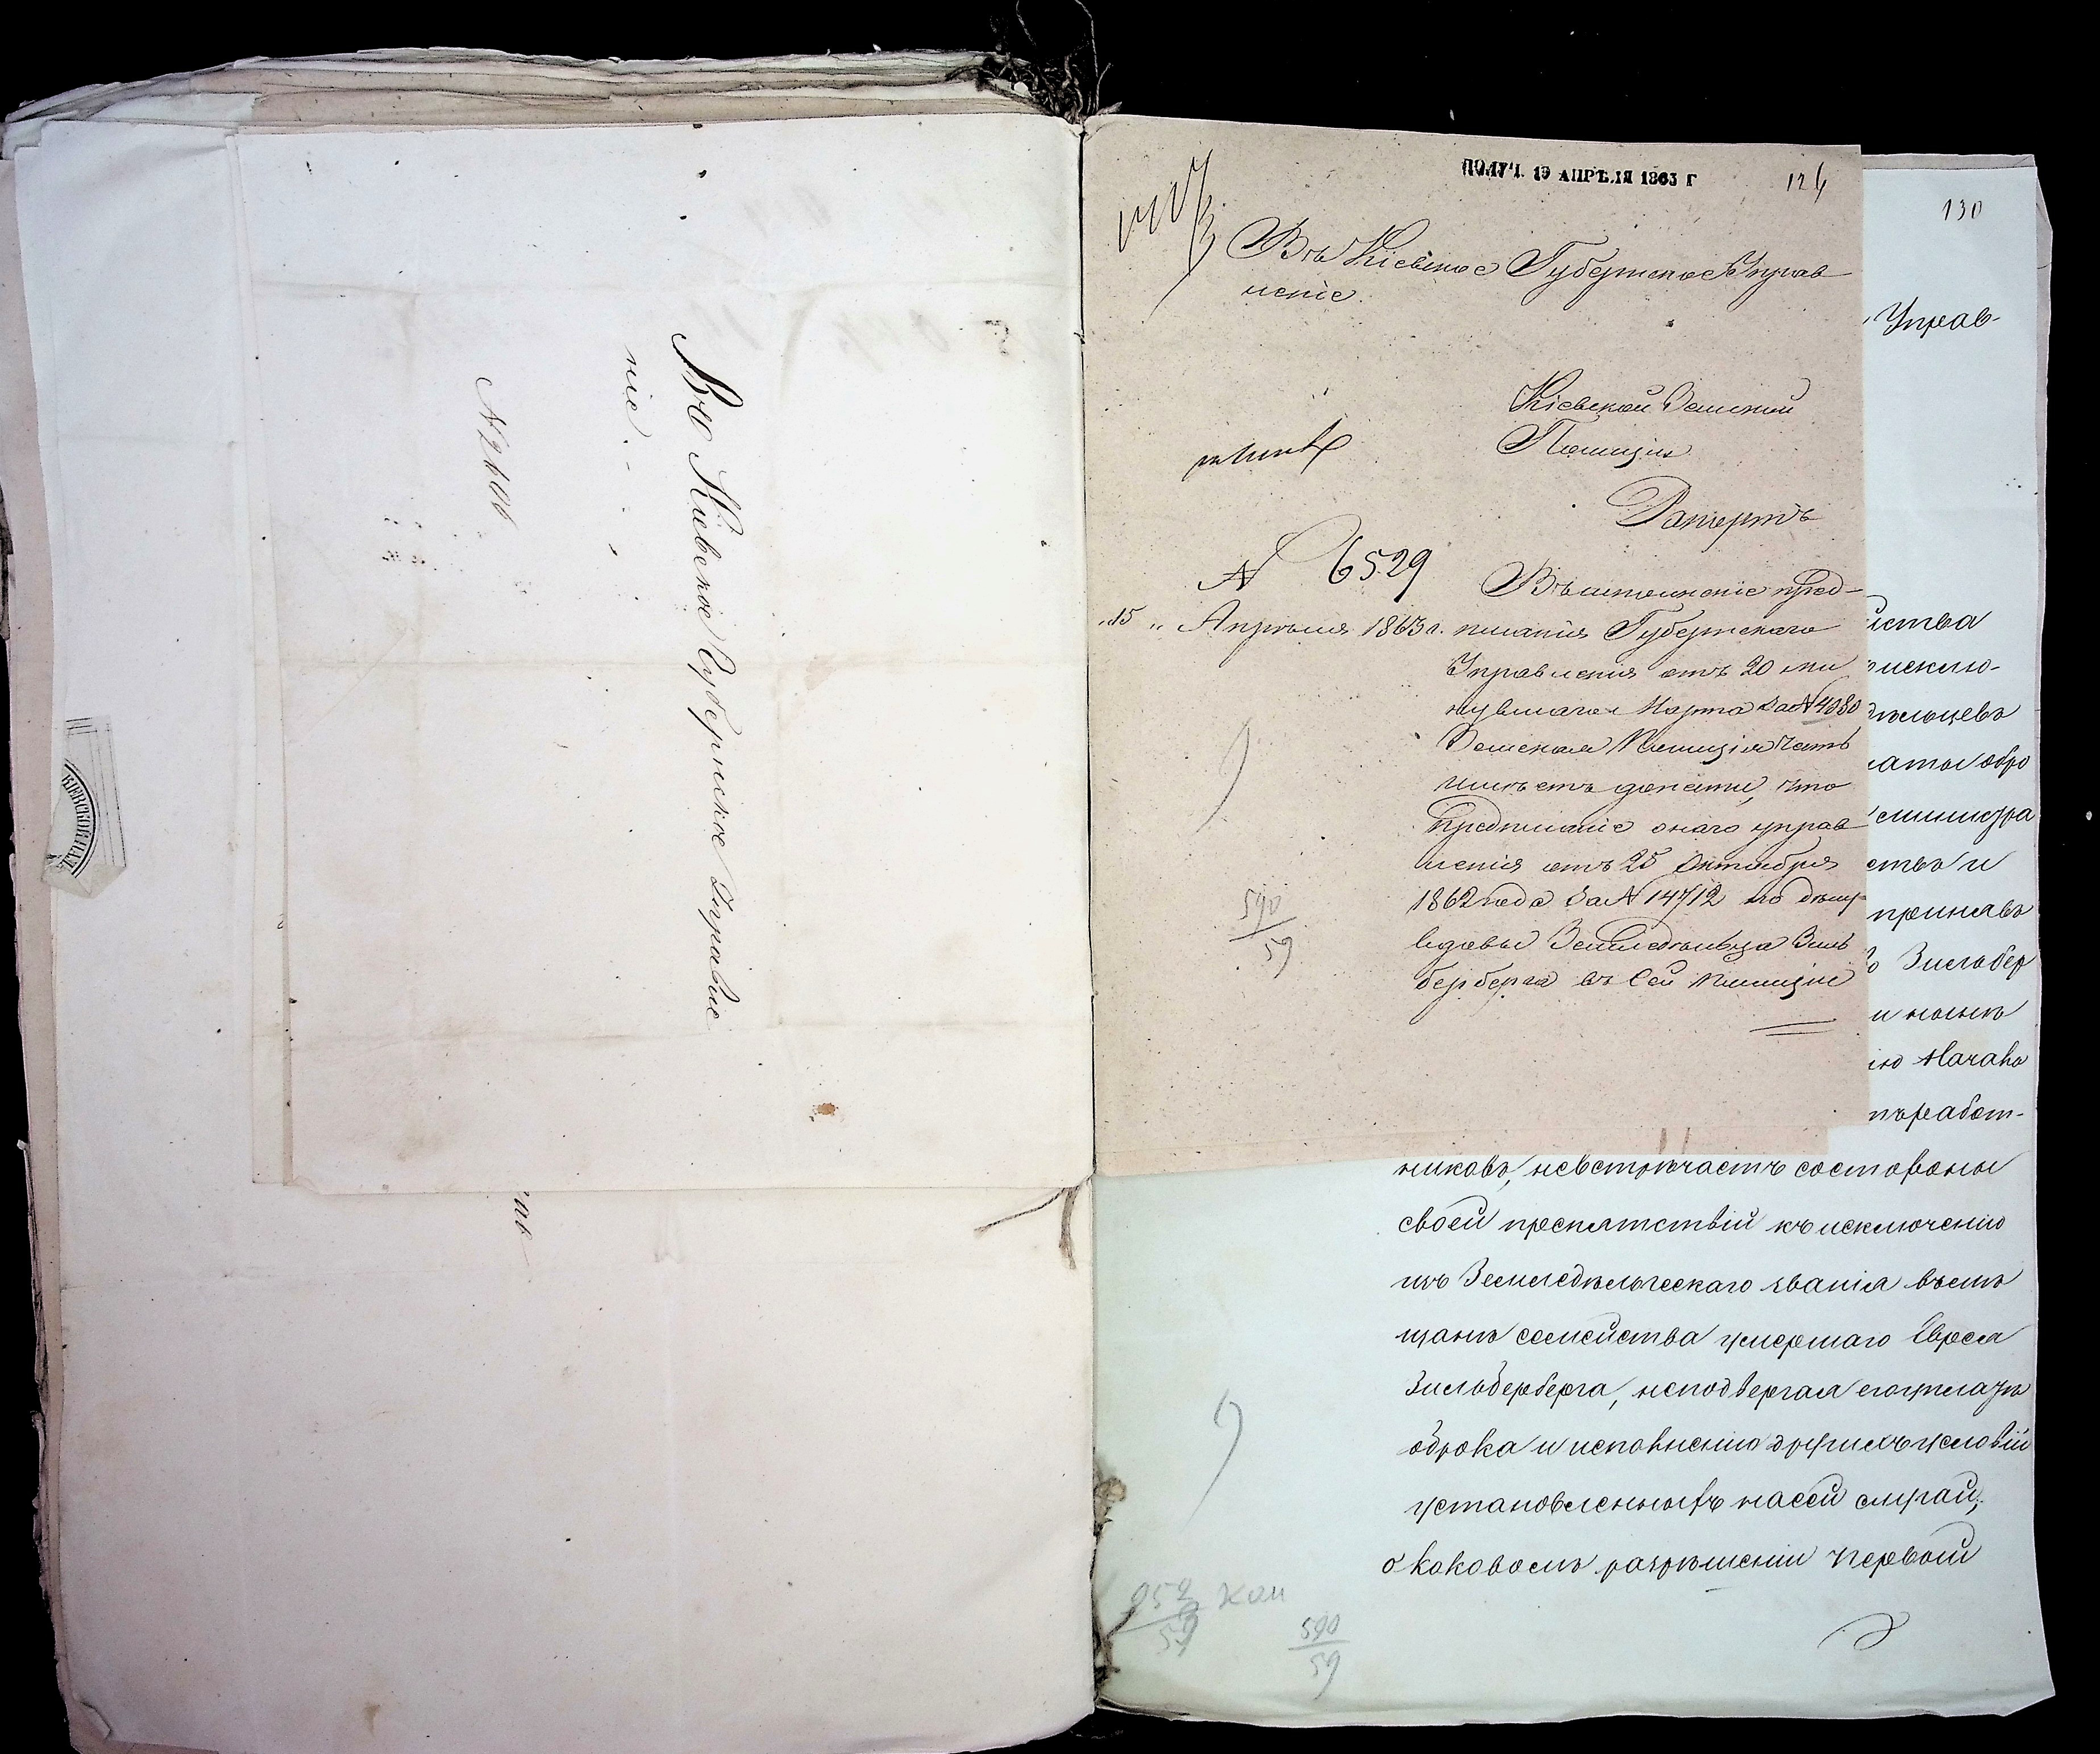 Въ Киевское Губернское Управле
ніе
№ 2406
КІЕВСКОЙ ПАЛ
ПОЛУЧ. 19 АПРѢЛЯ 1863 Г
124
Въ Кіевское Губернское Управ
леніе
Кіевской Земской
Полиціи
Рапортъ
№ 6529
15 Апрѣля 1863 г.
Въ исполненіе пред-
писанія Губернскаго
Управленія отъ 20 ми
нувшаго Марта за № 4080
Земская Полиція честь
имѣетъ донести, что
предписаніе онаго управ
ленія отъ 25 Октября
1862 года за № 14712 по дѣлу
вдовы Земледѣльца Зиль
берберга въ сей Полиціи
590
59
130
Управ-
исклю-
дѣльцевъ
принявъ
Зильбер
Начала
работ-
никовъ, не встрѣчаетъ со стороны
своей препятствій къ исключенію
изъ Земледѣльческаго званія въ мѣ
щане семейства умершаго Еврея
Зильберберга, не подвергая его уплатѣ
оброка и исполненію другихъ условій
установленныхъ на сей случай,
о каковомъ разрѣшеніи первой
952
59
590
59